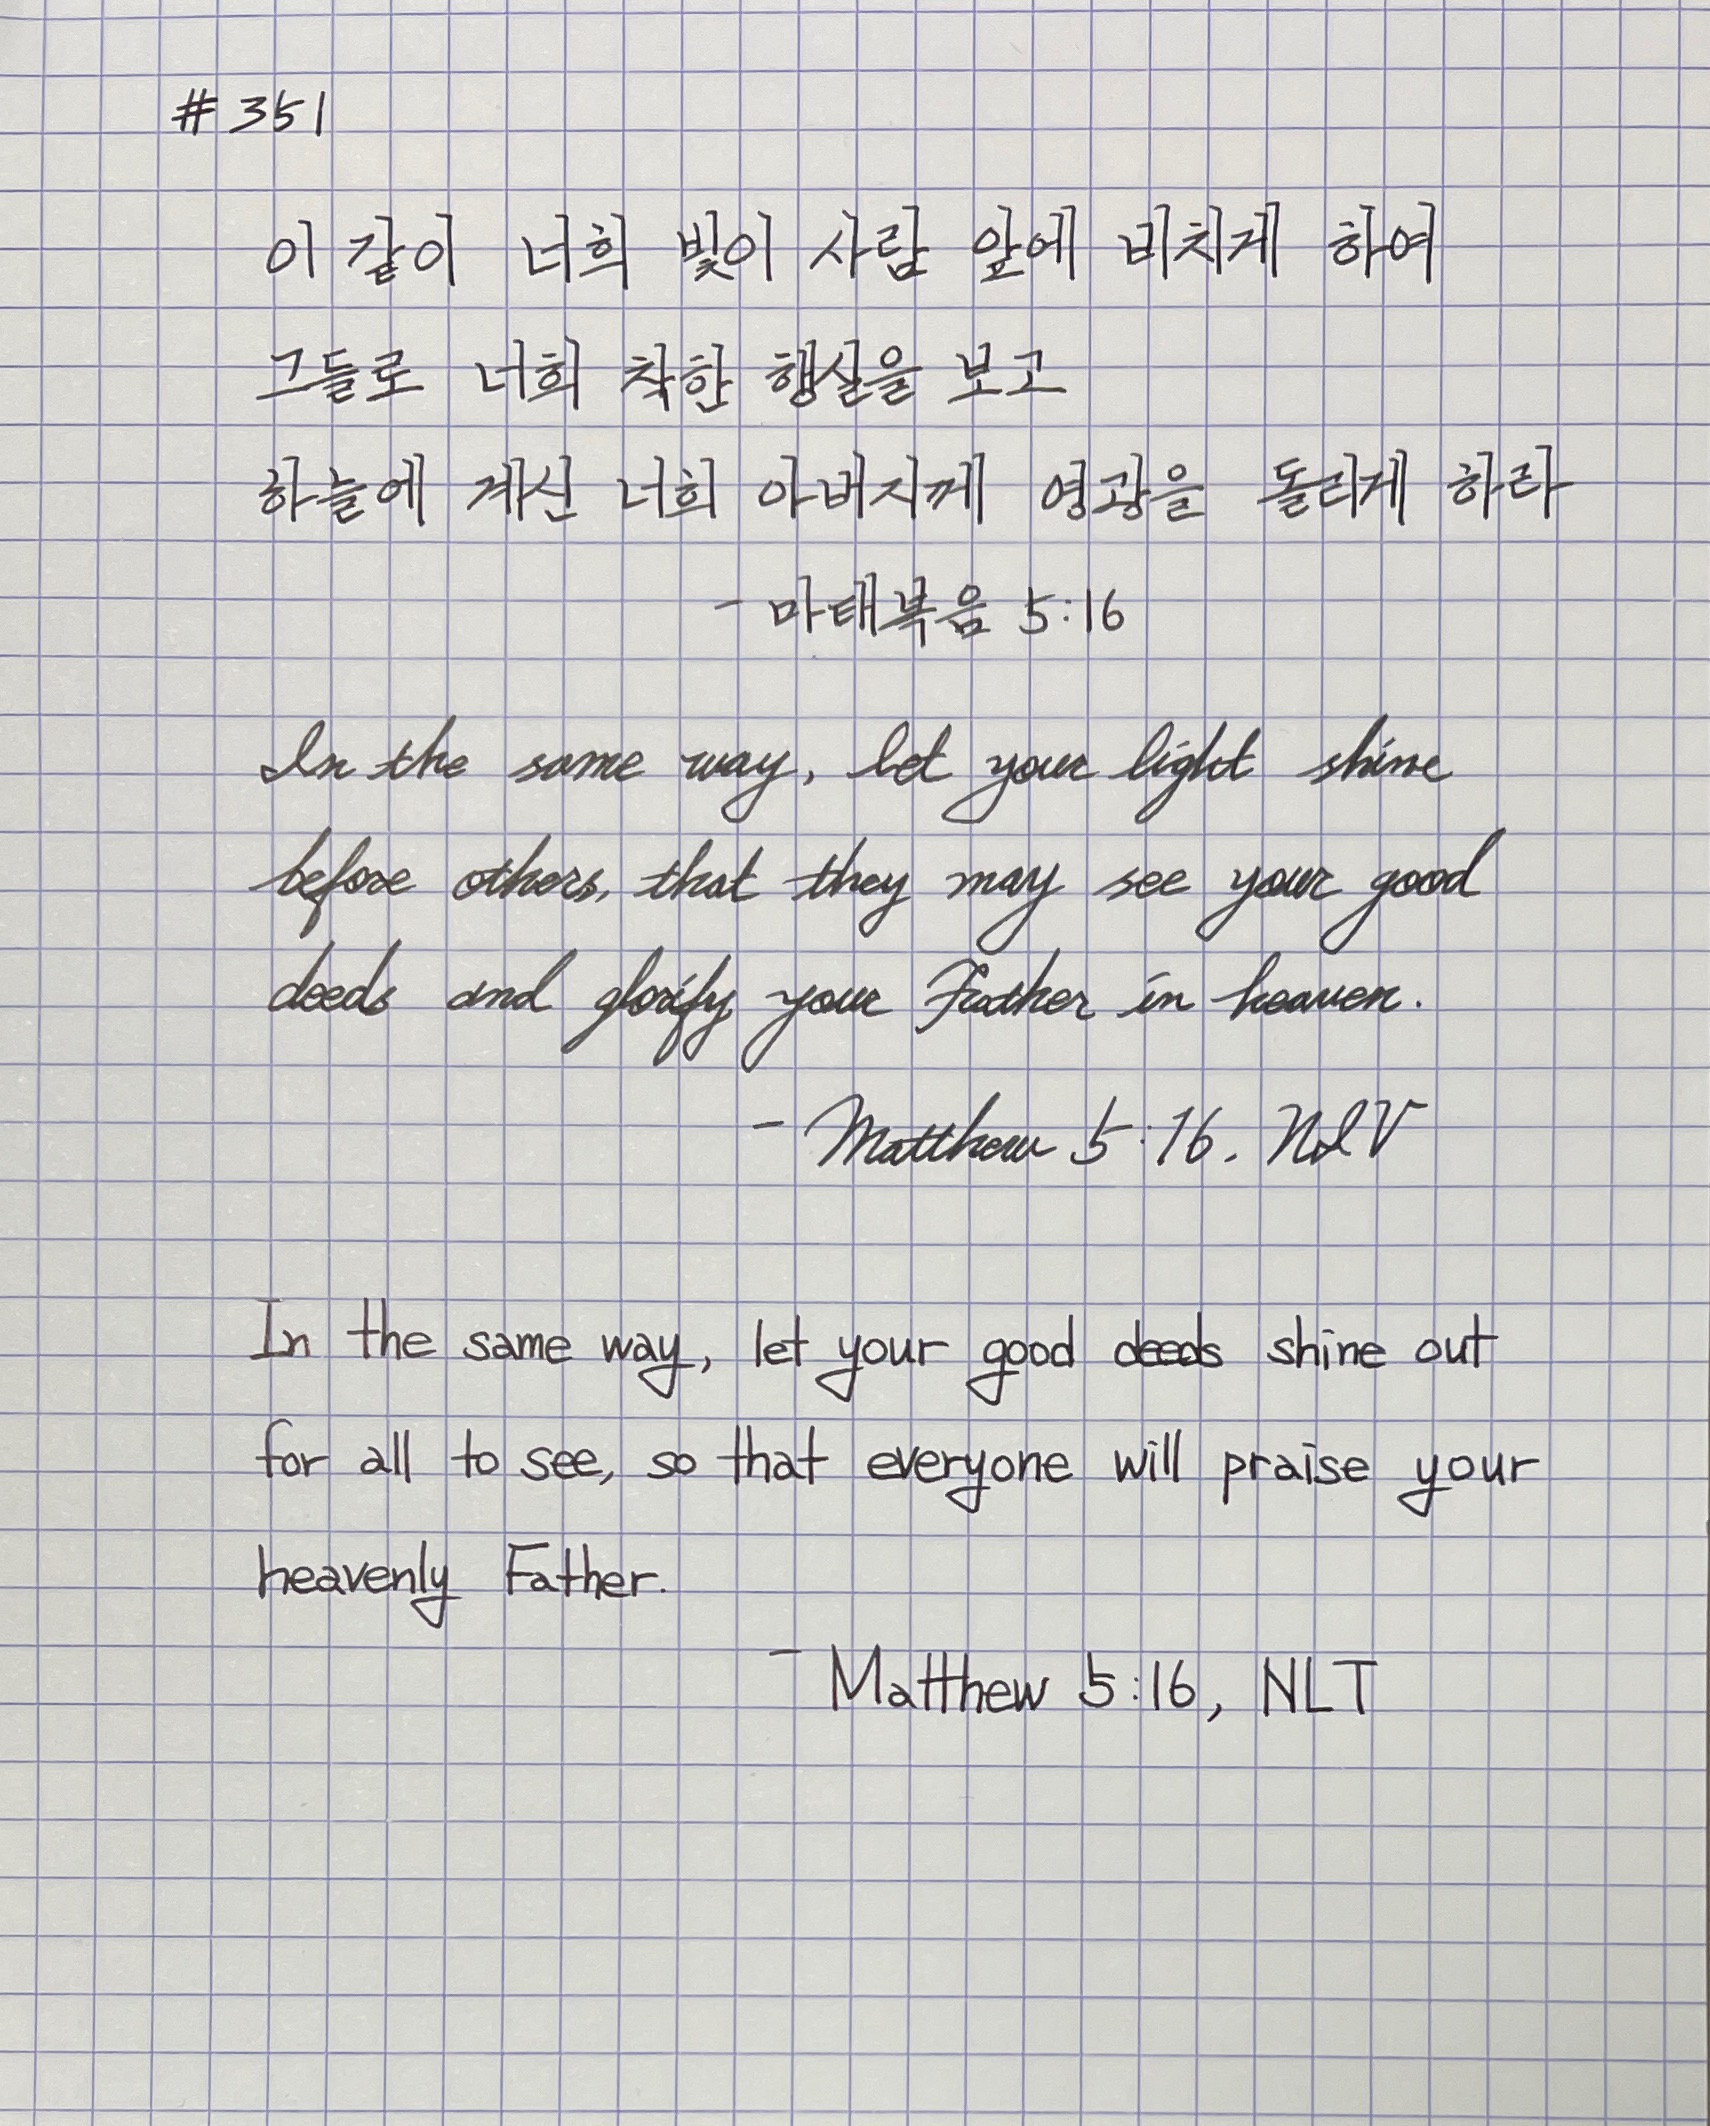 #351
이 같이 너희 빛이 사람 앞에 비치게 하여
그들로 너희 착한 행실을 보고
하늘에 계신 너희 아버지께 영광을 돌리게 하라
- 마태복음 5:16
In the same way, let your light shine
before others, that they may see your good
deeds and glorify your Father in heaven.
- Matthew 5:16. NIV
In the same way, let your good deeds shine out
for all to see, so that everyone will praise your
heavenly Father.
- Matthew 5:16, NLT